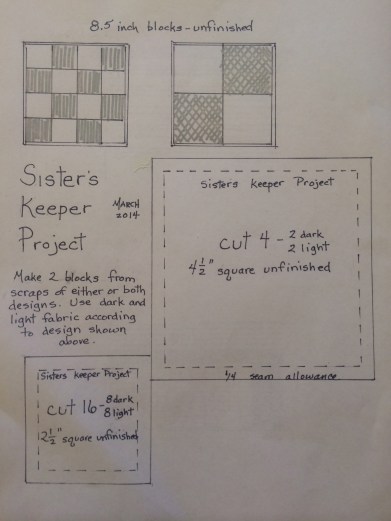 8.5 inch blocks - unfinished
Sister's
Keeper
MARCH
2014
Project
Make 2 blocks from
scraps of either or both
designs. Use dark and
light fabric according
to design shown
above.
Sisters Keeper Project
cut 4 - 2 dark
2 light
4 1/2" square unfinished
1/4 seam allowance
Sisters Keeper Project
cut 16 - 8 dark
8 light
2 1/2" square unfinished